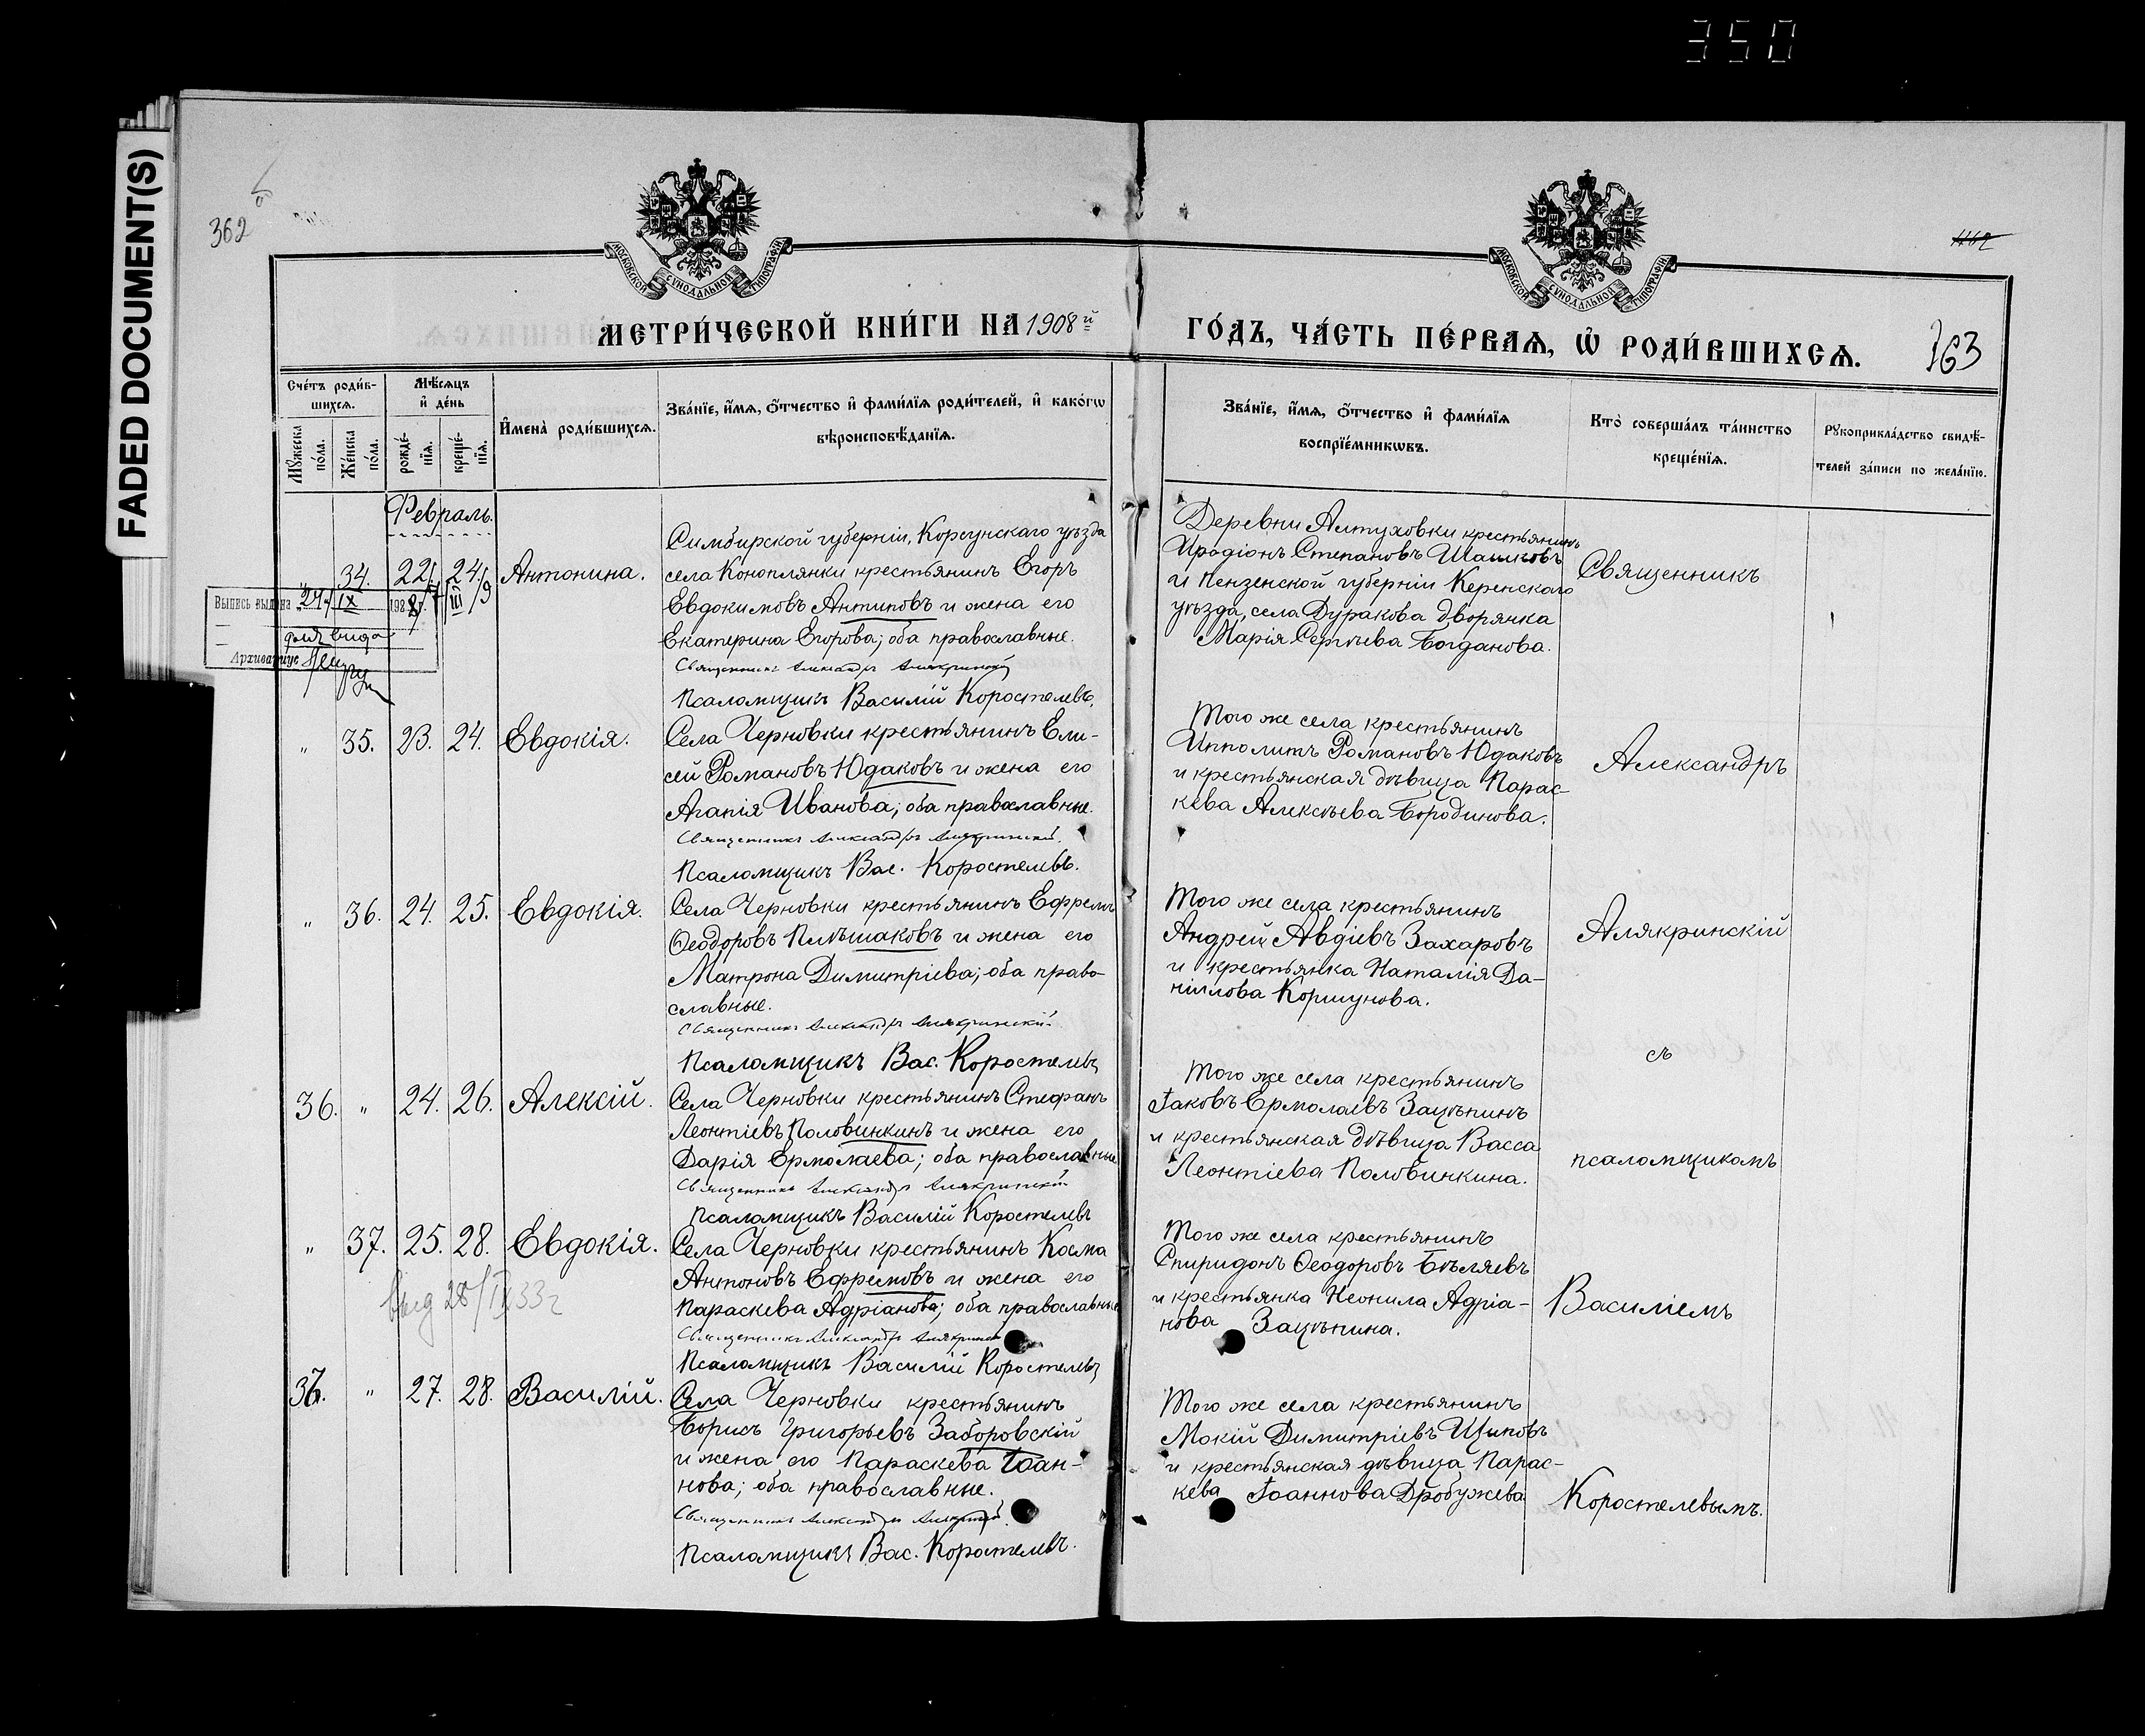 350
FADED DOCUMENT(S)
362
1162
МОСКОВСКОЙ СУНОДАЛЬНОЙ ТИПОГРАФІИ
МОСКОВСКОЙ СУНОДАЛЬНОЙ ТИПОГРАФІИ
МЕТРИ́ЧЕСКОЙ КНИ́ГИ НА 1908й ГО́ДЪ, ЧА́СТЬ ПЕ́РВАѦ, Ѡ҆ РОДИ́ВШИХСѦ.
163
Сче́тъ роди́в-
шихсѧ.
Мꙋжеска
по́ла.
Же́нска
по́ла.
Мѣ́сѧцъ
и҆ де́нь
рожде́-
нїѧ.
креще́-
нїѧ.
И҆мена̀ роди́вшихсѧ.
Зва́нїе, и҆́мѧ, ѻ҆́тчество и҆ фами́лїѧ роди́телей, и҆ како́гѡ
вѣроисповѣ́данїѧ.
Зва́нїе, и҆́мѧ, ѻ҆́тчество и҆ фами́лїѧ
воспрїе́мникѡвъ.
Кто̀ соверша́лъ та́инство
креще́нїѧ.
Рꙋкоприкла́дство свидѣ́-
телей за́писи по жела́нїю.
Февраль.
34. 22. 24. Антонина.
Симбирской губерніи, Корсунскаго уѣзда
села Коноплянки крестьянинъ Егоръ
Евдокимовъ Антиповъ и жена его
Екатерина Егорова; оба православные.
Священникъ Александръ Алякринскій
Псаломщикъ Василій Коростелевъ.
Деревни Алтуховки крестьянинъ
Иродіонъ Степановъ Шашковъ
и Пензенской губерніи Керенскаго
уѣзда, села Дуракова дворянка
Марія Сергѣева Богданова.
Выпись выдана 24/IX 1928
для вида
Архивариус
" 35. 23. 24. Евдокія.
Села Черновки крестьянинъ Ели-
сей Романовъ Юдаковъ и жена его
Агапія Иванова; оба православные.
Священникъ Александръ Алякринскій.
Псаломщикъ Вас. Коростелевъ.
Того же села крестьянинъ
Ипполитъ Романовъ Юдаковъ
и крестьянская дѣвица Парас-
кева Алексѣева Бородинова.
" 36. 24. 25. Евдокія.
Села Черновки крестьянинъ Ефремъ
Ѳеодоровъ Плѣшаковъ и жена его
Матрона Димитріева; оба право-
славные.
Священникъ Александръ Алякринскій.
Псаломщикъ Вас. Коростелевъ
Того же села крестьянинъ
Андрей Авдіевъ Захаровъ
и крестьянка Наталія Да-
ніилова Коршунова.
36. " 24. 26. Алексій.
Села Черновки крестьянинъ Стефанъ
Леонтіевъ Половинкинъ и жена его
Дарія Ермолаева; оба православные
Священникъ Александръ Алякринскій
Псаломщикъ Василій Коростелевъ
Того же села крестьянинъ
Іаковъ Ермолаевъ Зацѣпинъ
и крестьянская дѣвица Васса
Леонтіева Половинкина.
" 37. 25. 28. Евдокія.
Села Черновки крестьянинъ Косма
Антоновъ Ефремовъ и жена его
Параскева Адріанова; оба православные
Священникъ Александръ Алякринскій
Псаломщикъ Василій Коростелевъ
Того же села крестьянинъ
Спиридонъ Ѳеодоровъ Бѣляевъ
и крестьянка Неонила Адріа-
нова Зацѣпина.
37. " 27. 28. Василій.
Села Черновки крестьянинъ
Борисъ Григорьевъ Заборовскій
и жена его Параскева Іоан-
нова; оба православные.
Священникъ Александръ Алякринскій.
Псаломщикъ Вас. Коростелевъ.
Того же села крестьянинъ
Мокій Димитріевъ Щиповъ
и крестьянская дѣвица Парас-
кева Іоаннова Дробужева
Священникъ
Александръ
Алякринскій
съ
псаломщикомъ
Василіемъ
Коростелевымъ.